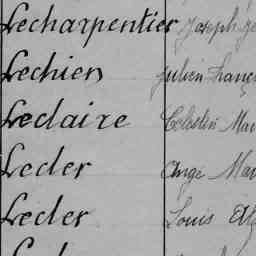 Lecharpentier Joseph
Lechien Julien Franç
Leclaire Célestin Mar
Lecler Ange Mar
Lecler Louis